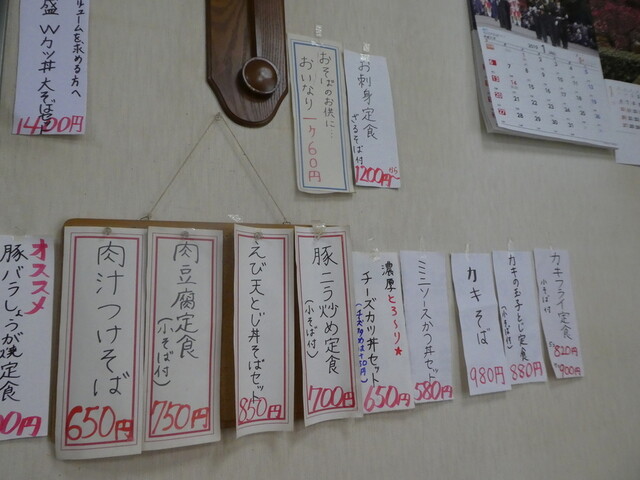 ボリュームを求める方へ
盛 Wカツ丼 大そばセット
1400円
おそばのお供に…
おいなり 一ケ60円
お刺身定食
ざるそば付
1200円
オススメ
豚バラしょうが焼定食
00円
肉汁つけそば
650円
肉豆腐定食
(小そば付)
750円
えび天とじ丼そばセット
850円
豚ニラ炒め定食
(小そば付)
700円
濃厚とろ〜り★
チーズカツ丼セット
650円
ミニソースかつ丼セット
580円
カキそば
980円
カキの玉子とじ定食
(小そば付)
880円
カキフライ定食
小そば付
820円
900円